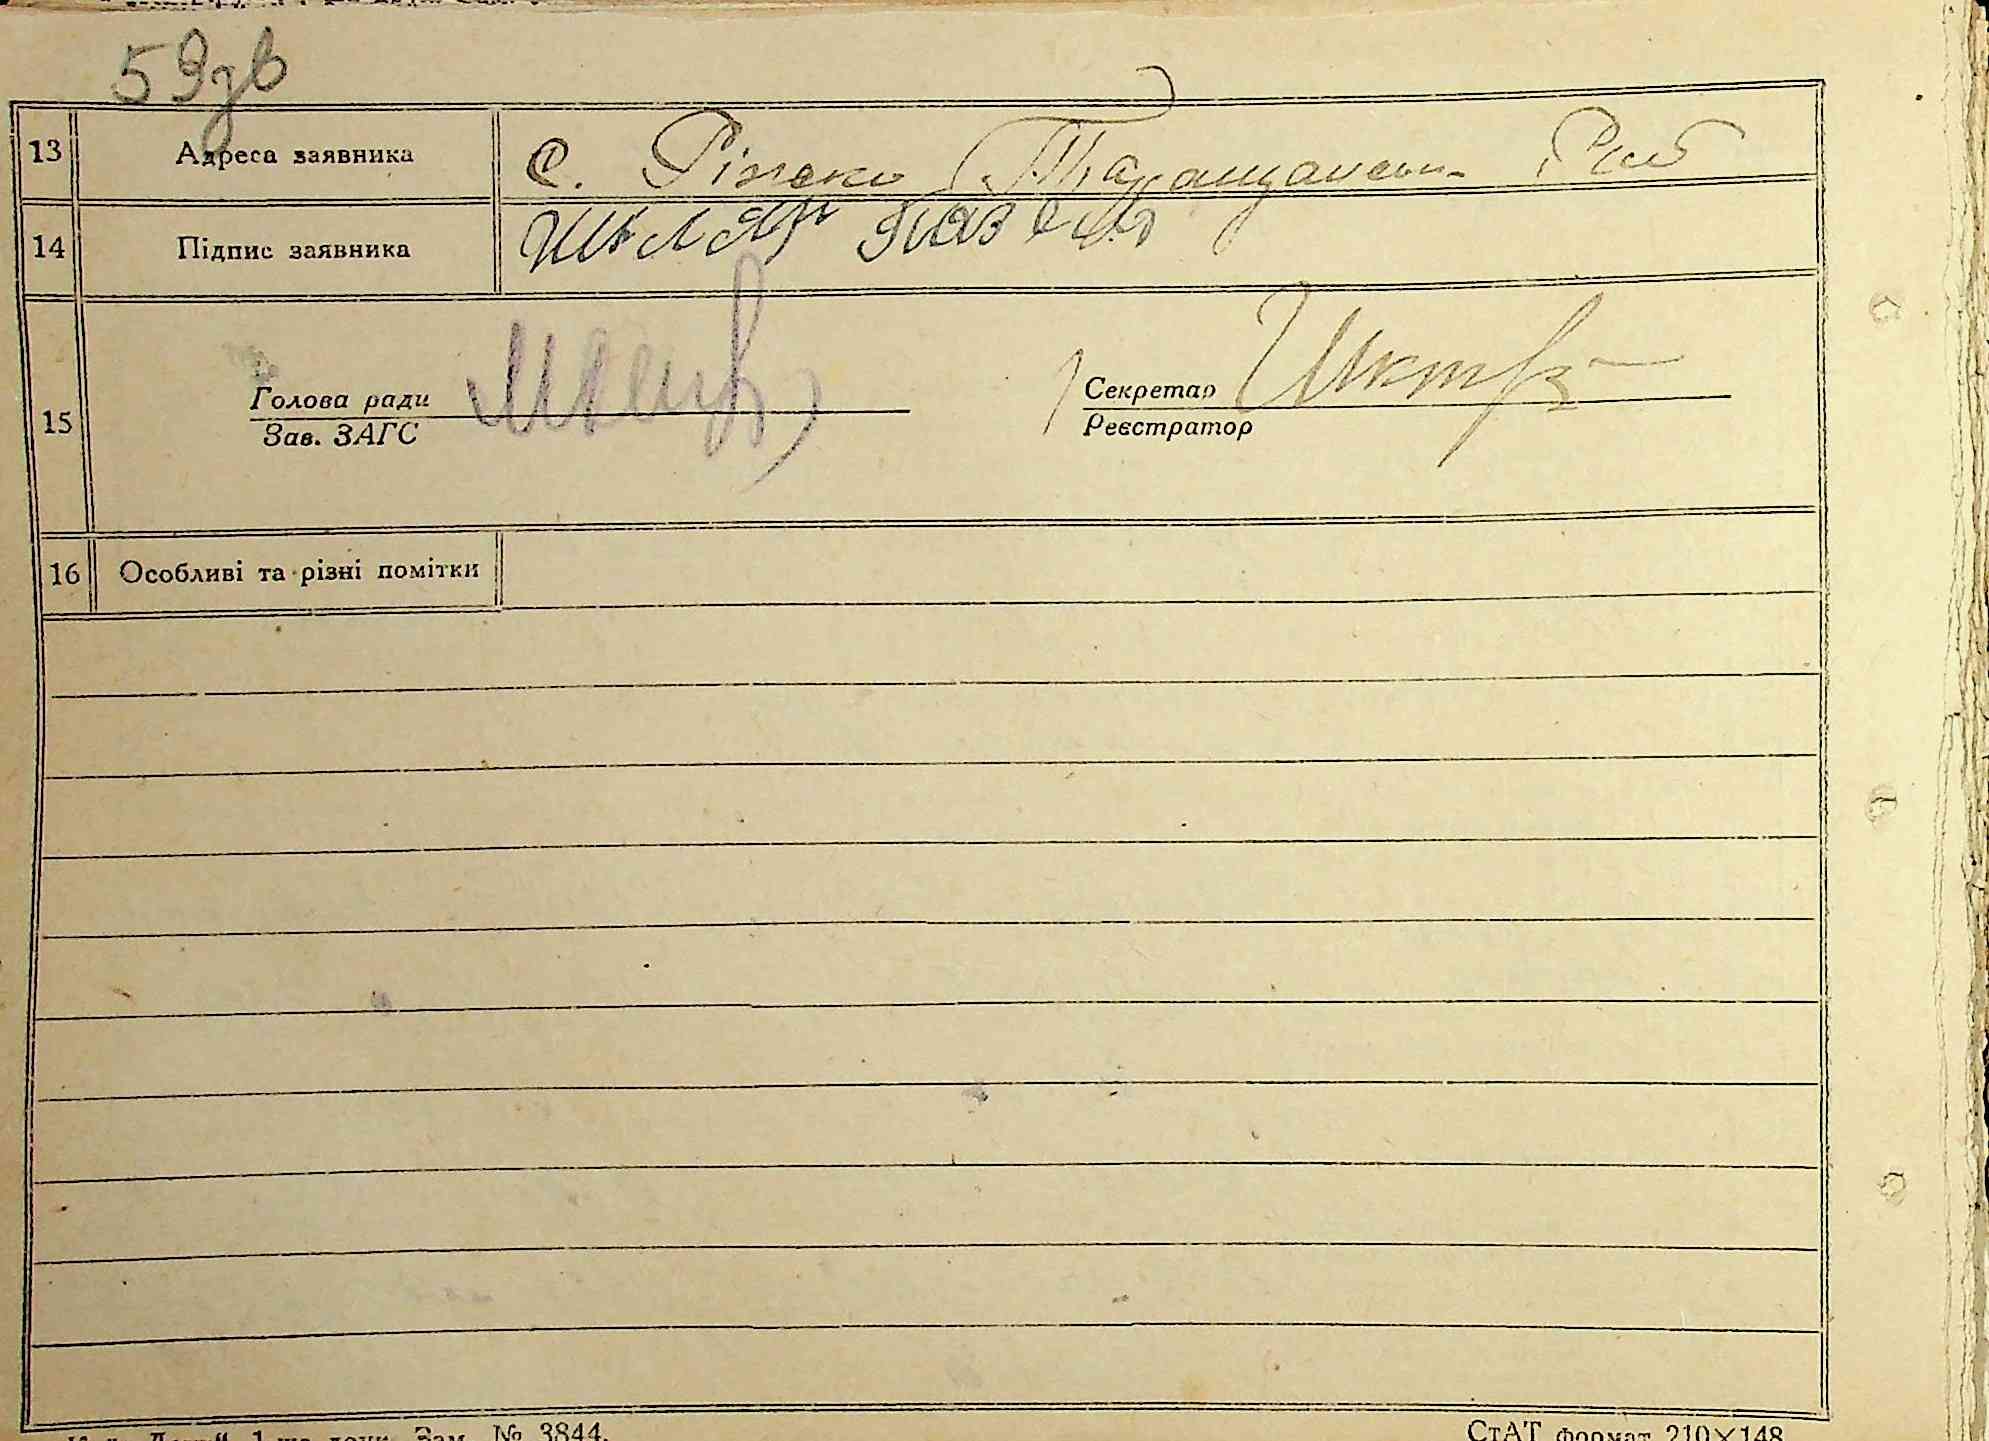 59зв
13 Адреса заявника с. Ріжки Таращанськ. р
14 Підпис заявника Шкляр Павел
15 Голова ради Секретар
Зав. ЗАГС Реєстратор
16 Особливі та різні помітки
1-ша друк. Зам. № 3844. СтАТ формат 210×148